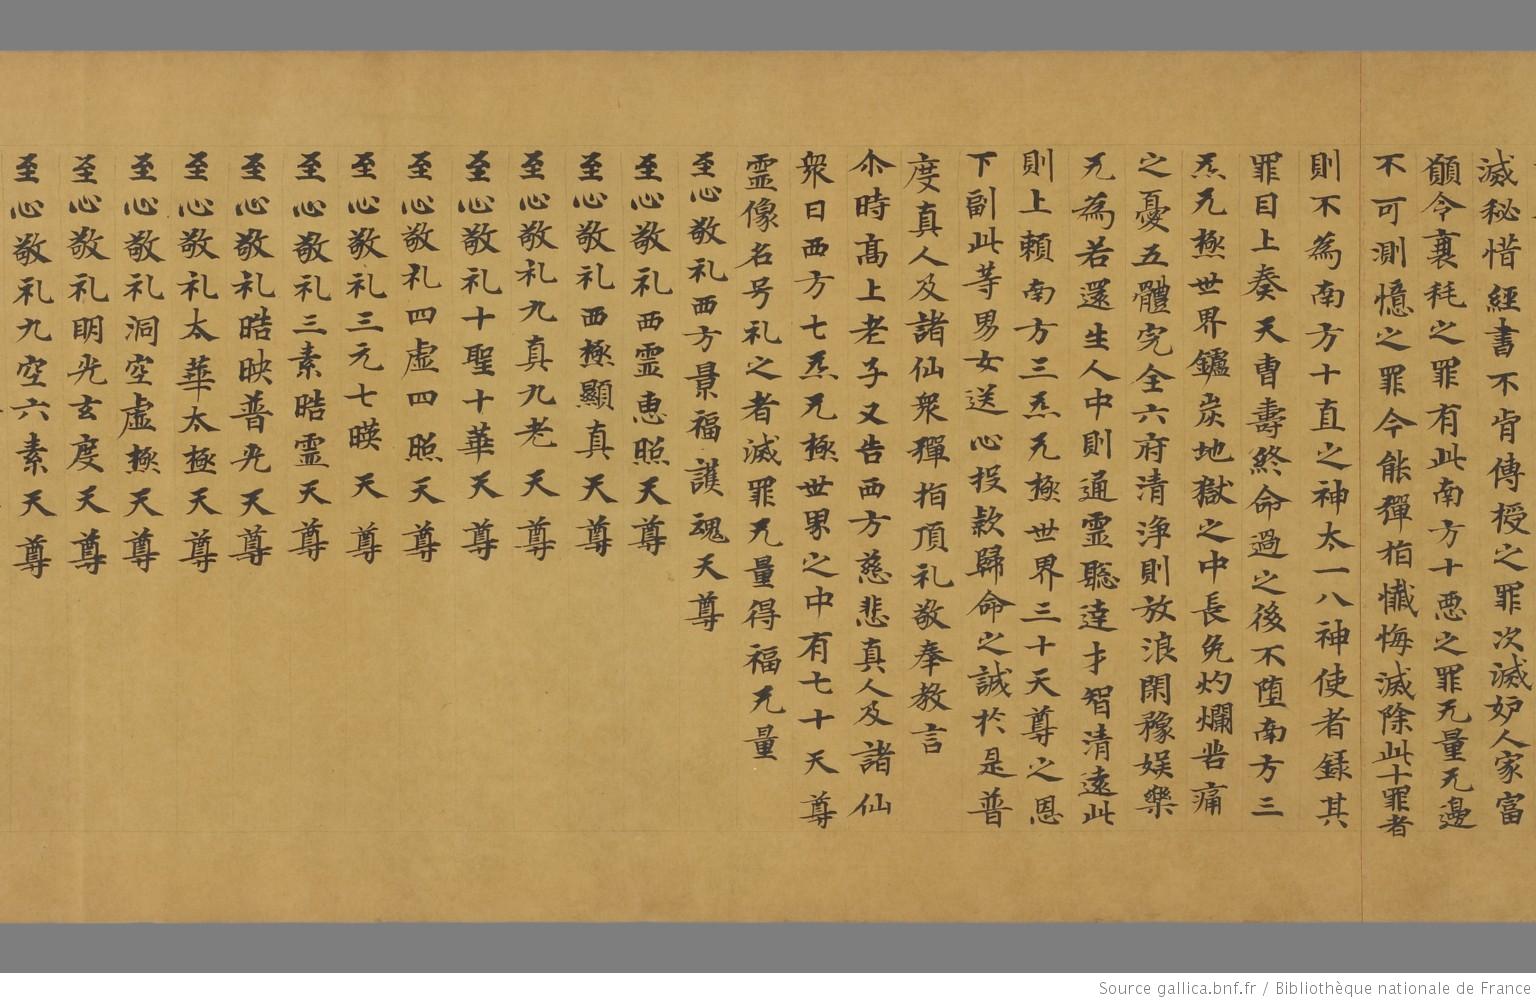 滅秘惜經書不肯傳授之罪次滅妒人家富
願令衰耗之罪有此南方十惡之罪无量无邊
不可測憶之罪今能彈指懺悔滅除此十罪者
則不為南方十直之神太一八神使者錄其
罪目上奏天曹壽終命過之後不墮南方三
炁无極世界鑪炭地獄之中長免灼爛苦痛
之憂五體完全六府清淨則放浪閑豫娛樂
无為若還生人中則通靈聡達才智清遠此
則上賴南方三炁无極世界三十天尊之恩
下副此等男女送心投款歸命之誠於是普
度真人及諸仙衆彈指頂礼敬奉教言
尒時髙上老子又告西方慈悲真人及諸仙
衆曰西方七炁无極世界之中有七十天尊
靈像名号礼之者滅罪无量得福无量
至心敬礼西方景福護魂天尊
至心敬礼西靈恵照天尊
至心敬礼西極顯真天尊
至心敬礼九真九老天尊
至心敬礼十聖十華天尊
至心敬礼四虛四照天尊
至心敬礼三元七暎天尊
至心敬礼三素晧靈天尊
至心敬礼晧映普光天尊
至心敬礼太華太極天尊
至心敬礼洞空虛極天尊
至心敬礼明光玄度天尊
至心敬礼九空六素天尊
Source gallica.bnf.fr / Bibliothèque nationale de France